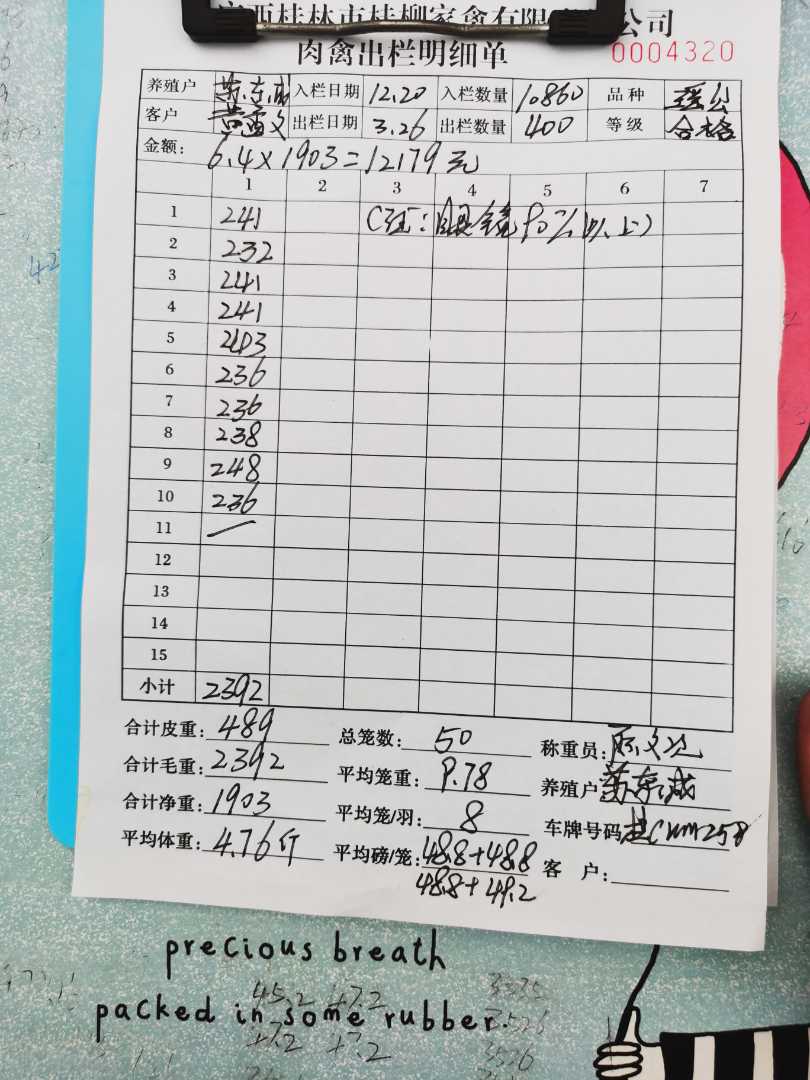 广西桂林市桂柳家禽有限公司
肉禽出栏明细单 0004320
养殖户 苏东成 入栏日期 12.20 入栏数量 10860 品种
客户 出栏日期 3.26 出栏数量 400 等级 合格
金额: 6.4×1903=12179元
1 2 3 4 5 6 7
1 241 眼镜90%以上)
2 232
3 241
4 241
5 243
6 236
7 236
8 238
9 248
10 236
11
12
13
14
15
小计 2392
合计皮重: 489 总笼数: 50 称重员:
合计毛重: 2392 平均笼重: 9.78 养殖户 苏东成
合计净重: 1903 平均笼/羽: 8 车牌号码
平均体重: 4.76斤 平均磅/笼: 48.8+48.8 客 户:
48.8+49.2
precious breath
packed in some rubber.
45.2 47.2 3535
47.2 3526